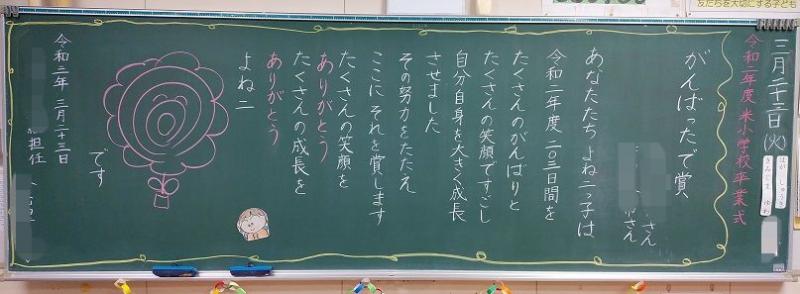 友だちを大切にする子ども
三月二十三日(火)
令和二年度米小学校卒業式
がんばったで賞
さん
さん
あなたたち よねニっ子は
令和二年度 二〇三日間を
たくさんのがんばりと
たくさんの笑顔ですごし
自分自身を大きく成長
させました
その努力をたたえ
ここに それを賞します
たくさんの笑顔を
ありがとう
たくさんの成長を
ありがとう
よねニ
です
令和二年 三月二十三日
担任